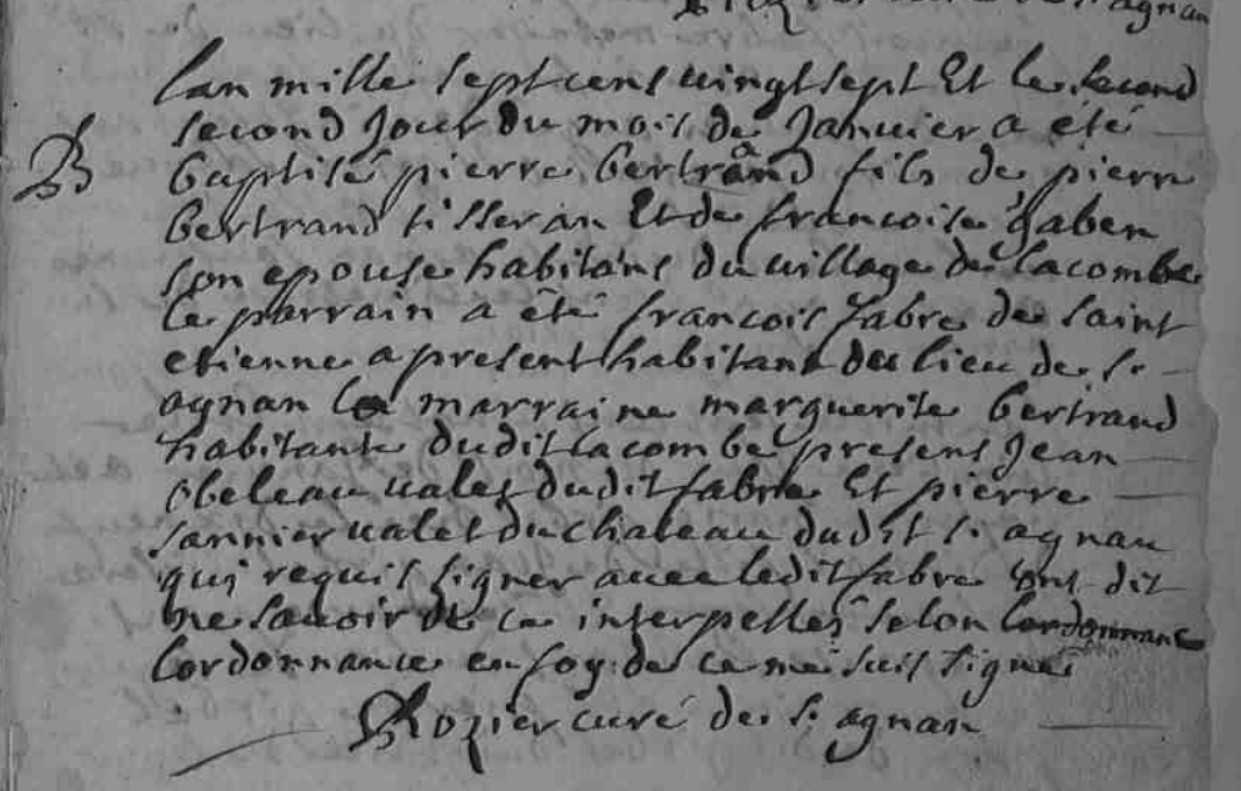 agnan
lan mille sept cens uingt sept Et le second
second Jour du mois de Januier a été
B
baptisé pierre bertrand fils de pierre
bertrand tisseran Et de francoise gaben
son epouse habitans du uillage de lacombe
le parrain a été francois fabre de saint
etienne a present habitant du lieu de s.
agnan la marraine marguerite bertrand
habitante dudit lacombe presens Jean
obeleau ualet dudit fabre Et pierre
sannier ualet du chateau dudit s. agnan
qui requis signer auec ledit fabre ont dit
ne sauoir de ce interpellés selon lordonnance
lordonnance en foy de ce me suis signé
Rozier curé de s. agnan